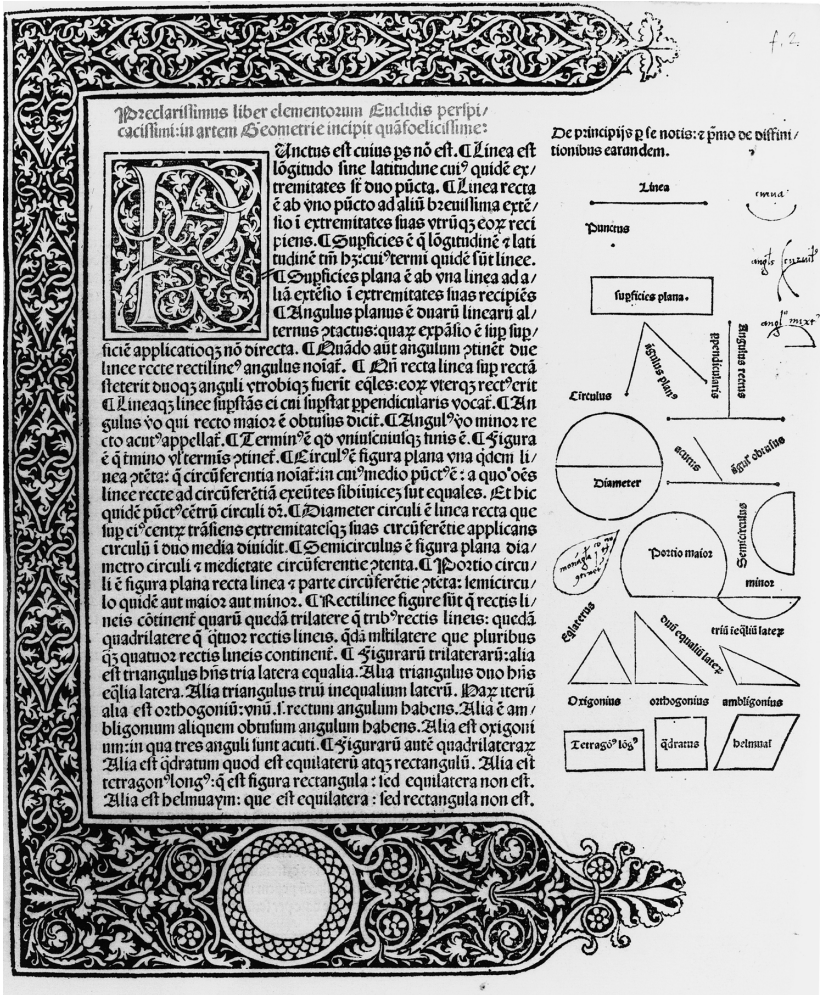 f. 2.
Preclarissimus liber elementorum Euclidis perspi/
cacissimi: in artem Geometrie incipit quãfoelicissime:
PUnctus est cuius ps nõ est. ¶ Linea est
lõgitudo sine latitudine cuiꝰ quidẽ ex/
tremitates st̃ duo pũcta. ¶ Linea recta
ẽ ab vno pũcto ad aliũ breuissima extẽ/
sio ĩ extremitates suas vtrũqꝫ eoꝝ reci
piens. ¶ Supficies ẽ q̃ lõgitudinẽ ⁊ lati
tudinẽ tm̃ hꝫ: cuiꝰ termi quidẽ sũt linee.
¶ Supficies plana ẽ ab vna linea ad a/
liã extẽsio ĩ extremitates suas recipiẽs
¶ Angulus planus ẽ duarũ linearũ al/
ternus ꝯtactus: quaꝝ expãsio ẽ sup sup/
ficiẽ applicatioqꝫ nõ directa. ¶ Quãdo aũt angulum ꝯtinẽt due
linee recte rectilineꝰ angulus noiat̃. ¶ Qñ recta linea sup rectã
steterit duoqꝫ anguli vtrobiqꝫ fuerit eq̃les: eoꝝ vterqꝫ rectꝰ erit
¶ Lineaqꝫ linee supstãs ei cui supstat ppendicularis vocat̃. ¶ An
gulus vo qui recto maior ẽ obtusus dicit̃. ¶ Angulꝰ vo minor re
cto acutꝰ appellat̃. ¶ Terminꝰ ẽ qd vniuscuiusqꝫ finis ẽ. ¶ Figura
ẽ q̃ tmino vl̓ termis ꝯtinet̃. ¶ Circulꝰ ẽ figura plana vna q̃dem li/
nea ꝯtẽta: q̃ circũferentia noiat̃: in cuiꝰ medio pũctꝰ ẽ: a quo oẽs
linee recte ad circũferẽtiã exeũtes sibiinuicẽ sut equales. Et hic
quidẽ pũctꝰ cẽtrũ circuli dr̃. ¶ Diameter circuli ẽ linea recta que
sup eiꝰ centꝝ trãsiens extremitatesqꝫ suas circũferẽtie applicans
circulũ ĩ duo media diuidit. ¶ Semicirculus ẽ figura plana dia/
metro circuli ⁊ medietate circũferentie ꝯtenta. ¶ Portio circu/
li ẽ figura plana recta linea ⁊ parte circũferẽtie ꝯtẽta: semicircu/
lo quidẽ aut maior aut minor. ¶ Rectilinee figure sũt q̃ rectis li/
neis cõtinent̃ quarũ quedã trilatere q̃ tribꝰ rectis lineis: quedã
quadrilatere q̃ q̃tuor rectis lineis. q̃dã mltilatere que pluribus
qꝫ quatuor rectis lineis continent̃. ¶ Figurarũ trilaterarũ: alia
est triangulus hñs tria latera equalia. Alia triangulus duo hñs
eq̃lia latera. Alia triangulus triũ inequalium laterũ. Haꝝ iterũ
alia est orthogoniũ: vnũ .s. rectum angulum habens. Alia ẽ am/
bligonium aliquem obtusum angulum habens. Alia est oxigoni
um: in qua tres anguli sunt acuti. ¶ Figurarũ autẽ quadrilateraꝝ
Alia est q̃dratum quod est equilaterũ atqꝫ rectangulũ. Alia est
tetragonꝰ longꝰ: q̃ est figura rectangula: sed equilatera non est.
Alia est helmuaym: que est equilatera: sed rectangula non est.
De principijs p se notis: ⁊ pmo de diffini/
tionibus earundem.
Linea
curua
Punctus
supficies plana.
ãgulus planꝰ
ppendicularis
Angulus rectus
Circulus
acutus
ãgulꝰ obtusus
Diameter
Semicirculus
Portio maior
minor
Eqlaterus
duũ equaliũ lateꝝ
triũ ieq̃liũ lateꝝ
Oxigonius
orthogonius
ambligonius
Tetragõꝰ lõgꝰ
q̃dratus
helmuaĩ